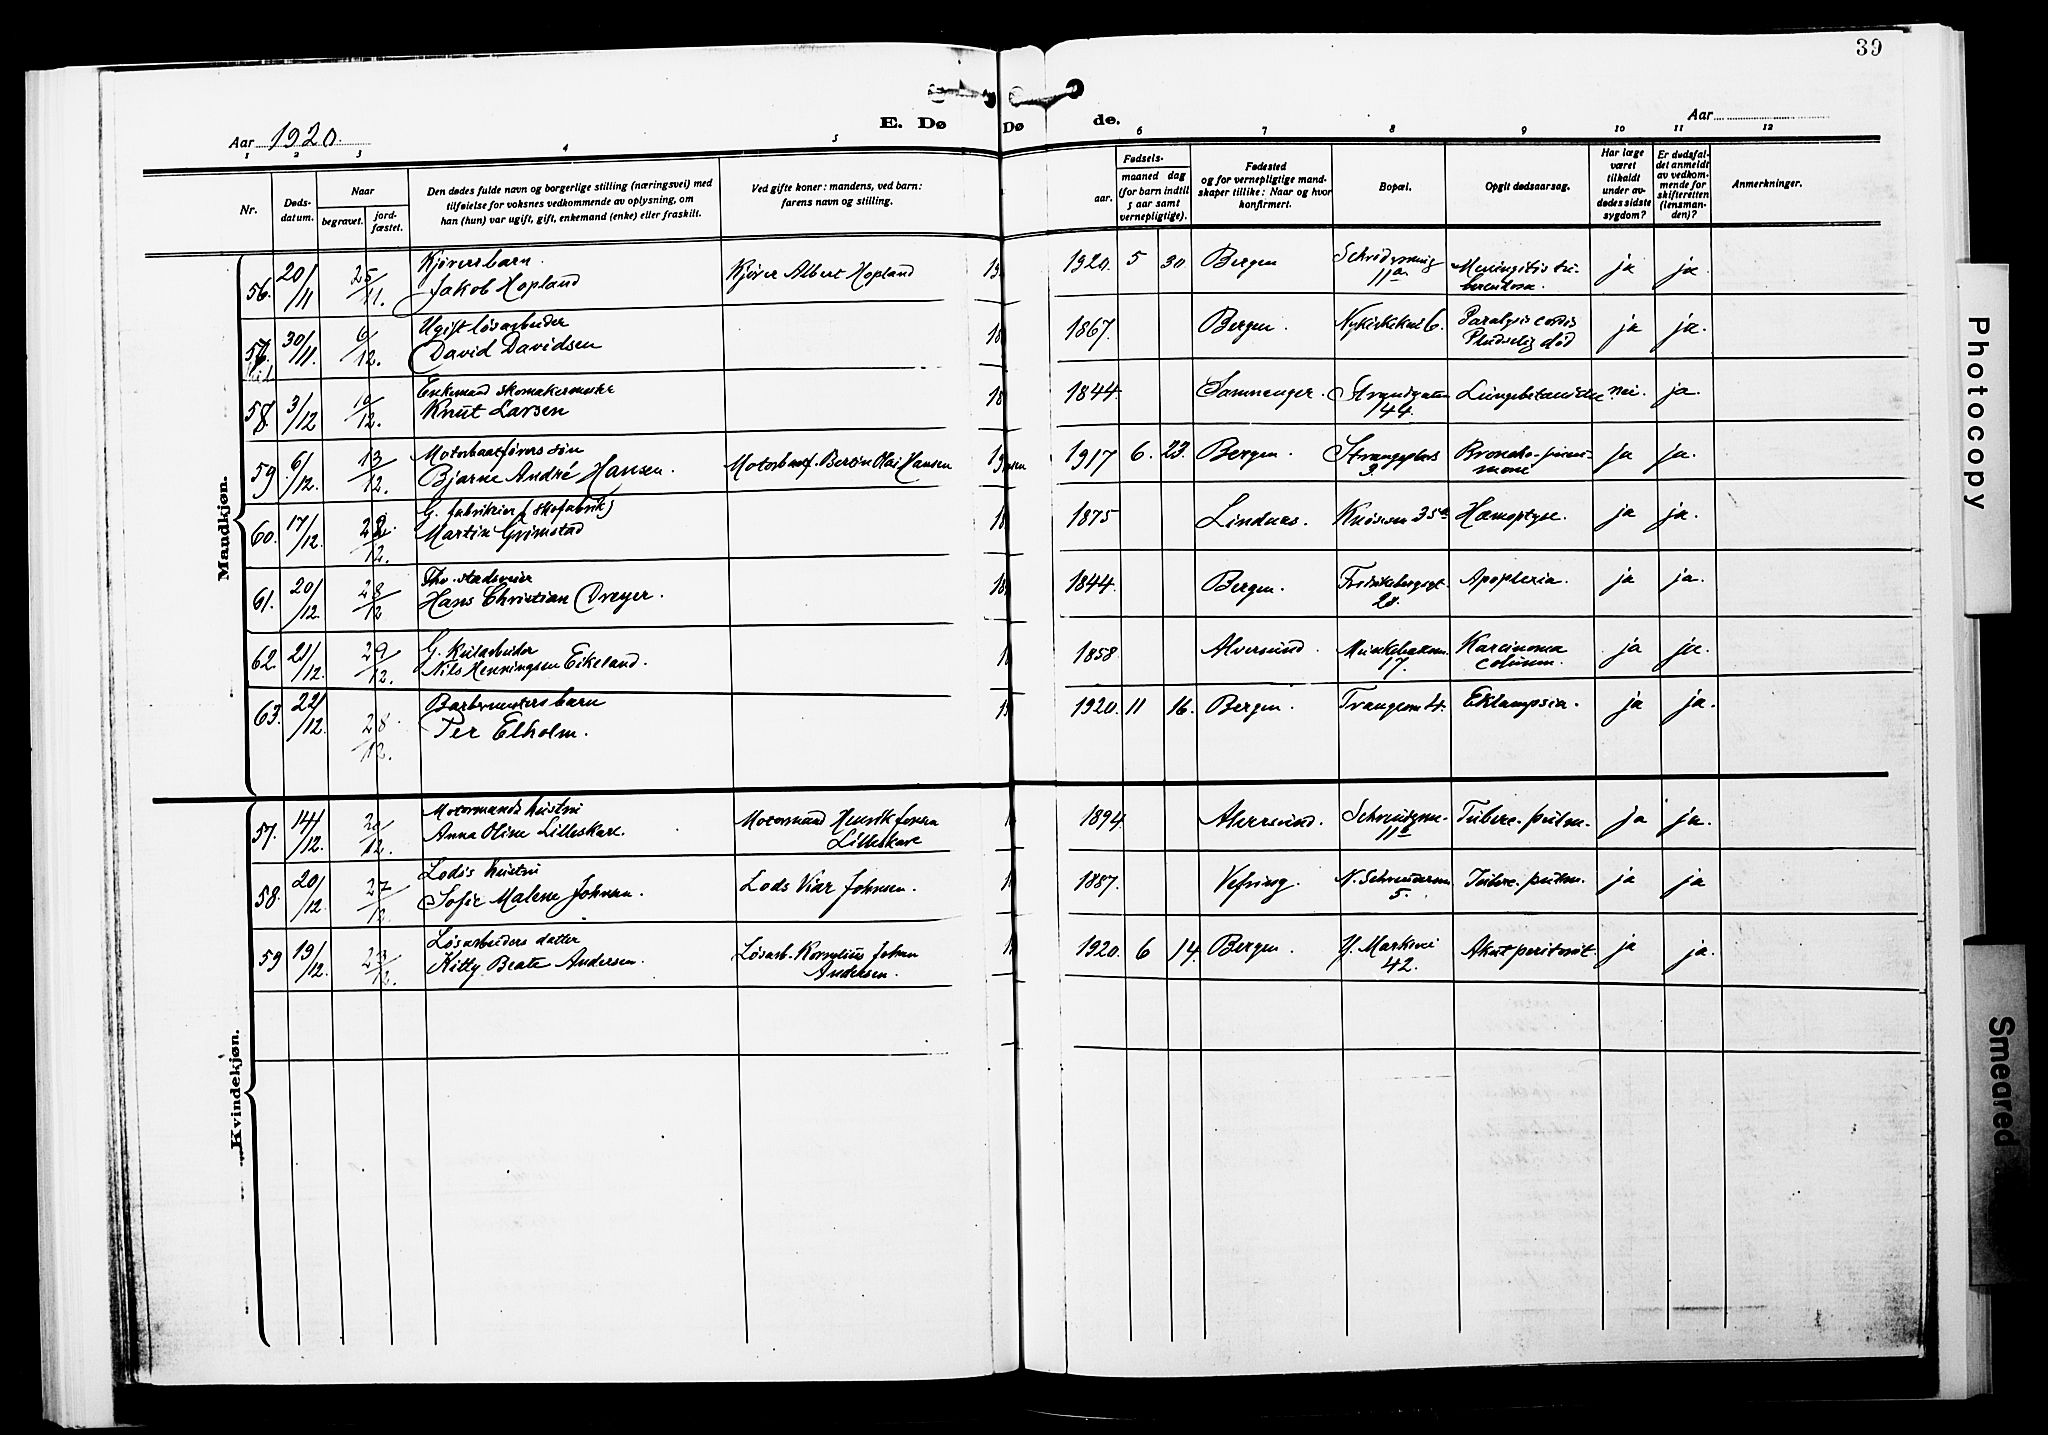 39
Aar 1920.
E. Dø
Dø
de.
Aar
1 2 3 4 5 6 7 8 9 10 11 12
Nr.
Døds-
datum.
Naar
begravet.
jord-
fæstet.
Den dødes fulde navn og borgerlige stilling (næringsvei) med
tilføielse for voksnes vedkommende av oplysning, om
han (hun) var ugift, gift, enkemand (enke) eller fraskilt.
Ved gifte koner: mandens, ved barn:
farens navn og stilling.
Fødsels-
aar.
maaned dag
(for barn indtil
5 aar samt
vernepligtige).
Fødested
og for vernepligtige mand-
skaper tillike: Naar og hvor
konfirmert.
Bopæl.
Opgit dødsaarsag.
Har læge
været
tilkaldt
under av-
dødes sidste
sygdom?
Er dødsfal-
det anmeldt
av vedkom-
mende for
skifteretten
(lensman-
den)?
Anmerkninger.
Mandkjøn.
56. 20/11 25/11. Kjørers barn.
Jakob Hopland
Kjører Albert Hopland 1920. 5 30 Bergen 11a Meningitis tu-
berculosa. ja ja.
57. 30/11. 6/12. Ugift løsarbeider
David Davidsen
1867. Bergen. Paralysis cordis
Pludselig død ja ja.
58. 3/12 10/12. Enkemand skomakermester
Knut Larsen
1844. Samnanger. Strandgaten
144. nei. ja.
59 6/12. 13/12. Motorbaatførers søn
Bjarne André Hansen.
Motorbaatf. Bertin Olai Hansen 1917 6. 23. Bergen. 3. Broncho-pneu-
moni ja ja.
60. 17/12. 22/12. G. fabrikeier (skofabrik)
Martin Grimstad
1875 Lindaas. Knøsesm 35a Hæmoptyse. ja ja.
61. 20/12. 28/12
Hans Christian Dreyer.
1844. Bergen. Fredriksbergsgt.
28. Apoplexia. ja ja.
62. 21/12. 29/12. G. Kularbeider
Nils Henningsen Eikeland.
1858. Alversund.
17. Karcinoma
column. ja ja.
63. 22/12. 28/12. Barbermesters barn
Per Elholm.
1920. 11 16. Bergen. Trangesm 4. Eklampsia. ja ja.
Kvindekjøn.
57. 14/12. 20/12. Motormands hustru
Anna Oline Lilleskare.
Motormand Henrik Jonsen
Lilleskare
1894. Alversund. 11b Tuberc. pulm. ja ja.
58. 20/12. 27/12 Lods hustru
Sofie Malene Johnsen.
Lods Viar Johnsen. 1887. Vefring.
5. Tuberc. pulm. ja ja
59 19/12. 23/12. Løsarbeiders datter
Kitty Beate Andersen.
Løsarb. Kornelius Johan
Andersen.
1920. 6 14. Bergen. Y. Markevei
42. Akut peritonit. ja ja.
Photocopy
Smeared